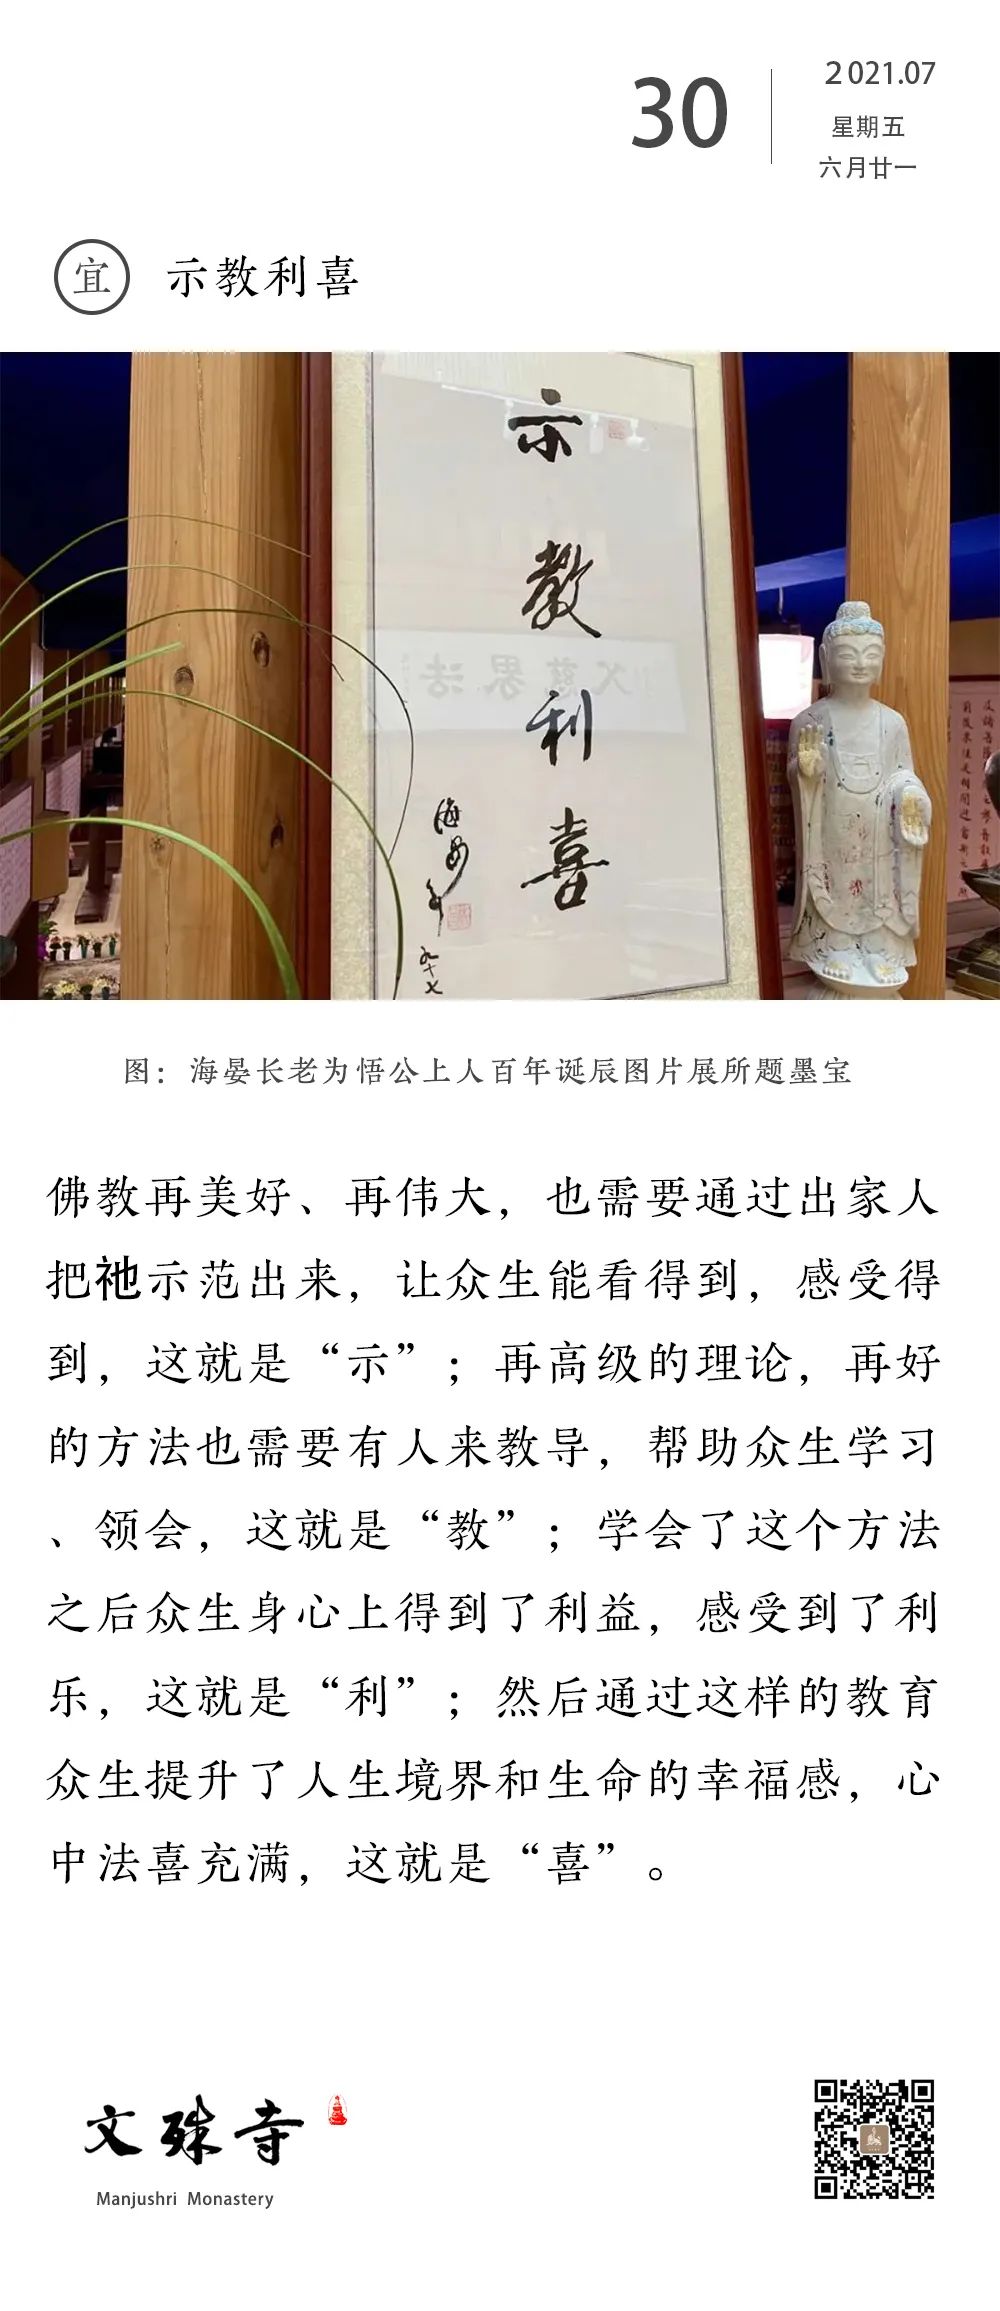 30
2021.07
星期五
六月廿一
宜 示教利喜
示教利喜
海晏
九十七
法界慈父
图：海晏长老为悟公上人百年诞辰图片展所题墨宝
佛教再美好、再伟大，也需要通过出家人
把祂示范出来，让众生能看得到，感受得
到，这就是“示”；再高级的理论，再好
的方法也需要有人来教导，帮助众生学习
、领会，这就是“教”；学会了这个方法
之后众生身心上得到了利益，感受到了利
乐，这就是“利”；然后通过这样的教育
众生提升了人生境界和生命的幸福感，心
中法喜充满，这就是“喜”。
文殊寺
Manjushri Monastery